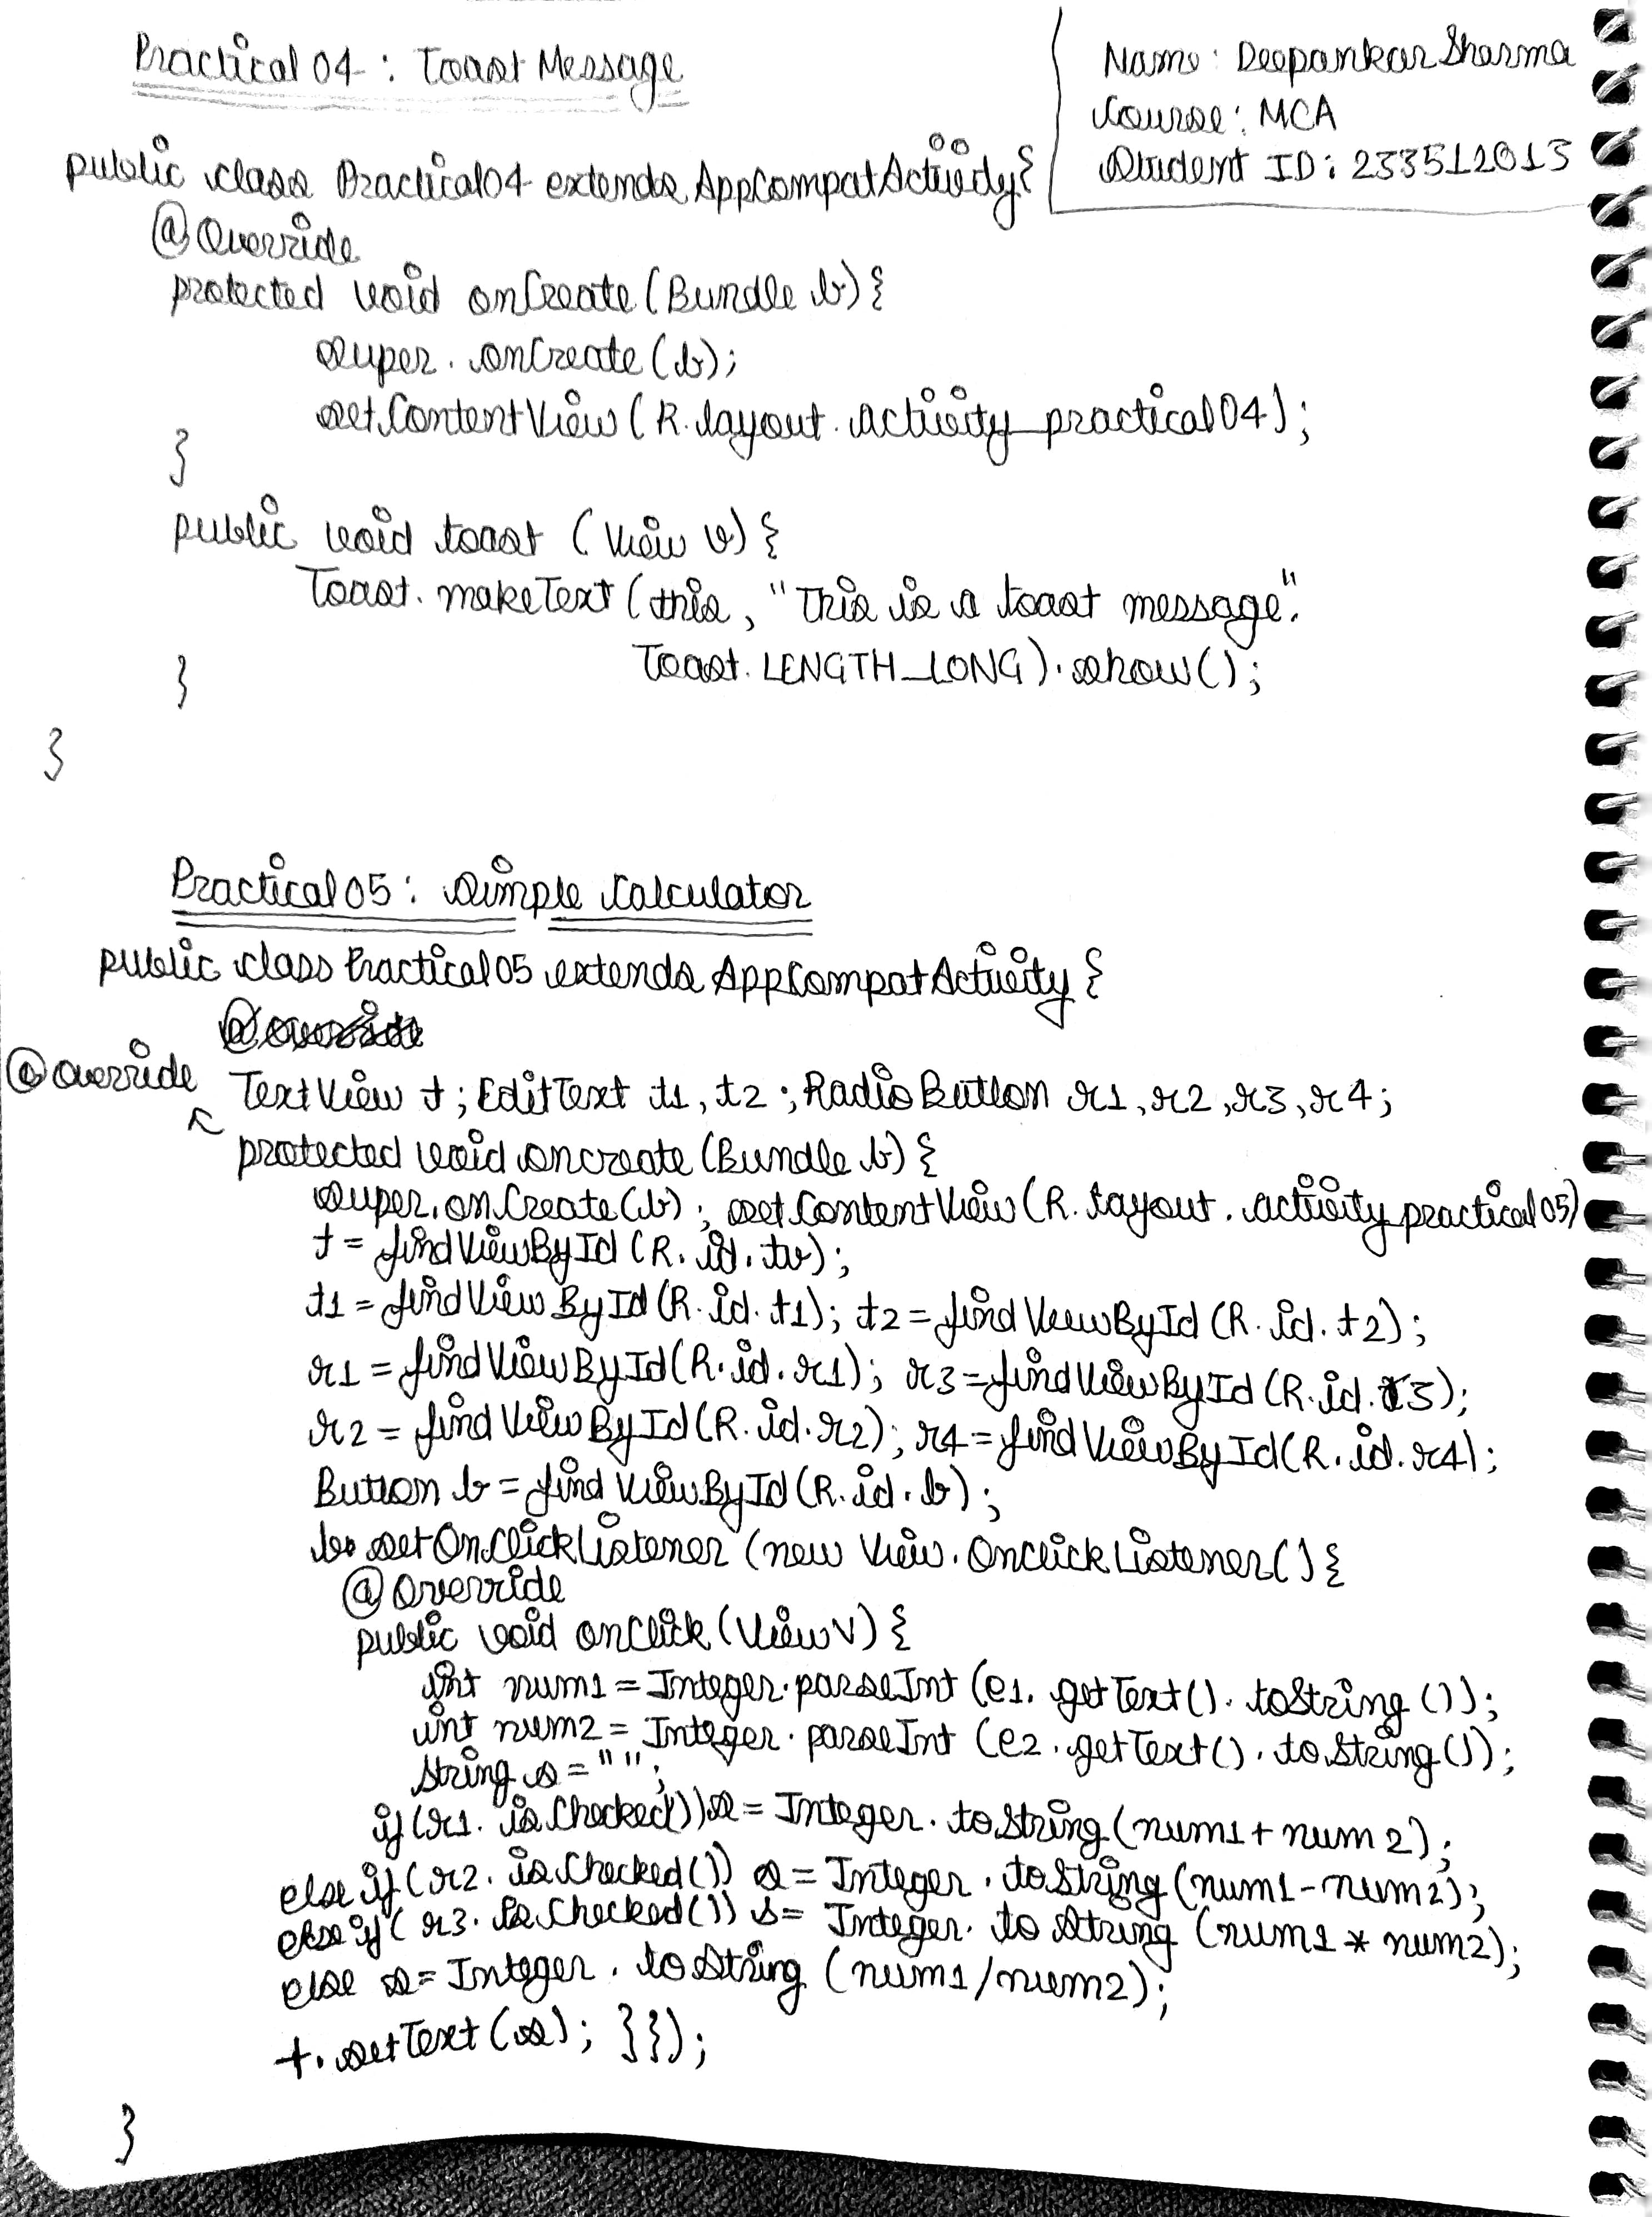 Practical 04 : Toast Message
Name : Deepankar Sharma
Course : MCA
Student ID : 233512013
public class Practical04 extends AppCompatActivity{
@Override
protected void onCreate (Bundle b) {
super.onCreate (b);
setContentView (R.layout.activity_practical04);
}
public void toast (View v) {
Toast.makeText (this, "This is a toast message".
Toast.LENGTH_LONG).show();
}
}
Practical 05 : Simple Calculator
public class Practical05 extends AppCompatActivity {
@Override
@Override
TextView t ; EditText t1, t2 ; RadioButton r1, r2, r3, r4;
protected void oncreate (Bundle b) {
super.onCreate(b); setContentView (R.layout.activity_practical05)
t = findViewById (R.id.tv);
t1 = findViewById (R.id.t1); t2 = findViewById (R.id.t2);
r1 = findViewById (R.id.r1); r3 = findViewById (R.id.r3);
r2 = findViewById (R.id.r2); r4 = findViewById (R.id.r4);
Button b = findViewById (R.id.b);
b.setOnClickListener (new View.OnClickListener() {
@Override
public void onClick (View V) {
int num1 = Integer.parseInt (e1.getText().toString ());
int num2 = Integer.parseInt (e2.getText().toString());
String s = "";
if (r1.isChecked()) s = Integer.toString (num1 + num2);
else if (r2.isChecked()) s = Integer.toString (num1 - num2);
else if (r3.isChecked()) s = Integer.to String (num1 * num2);
else s = Integer.toString (num1/num2);
t.setText (s); }});
}